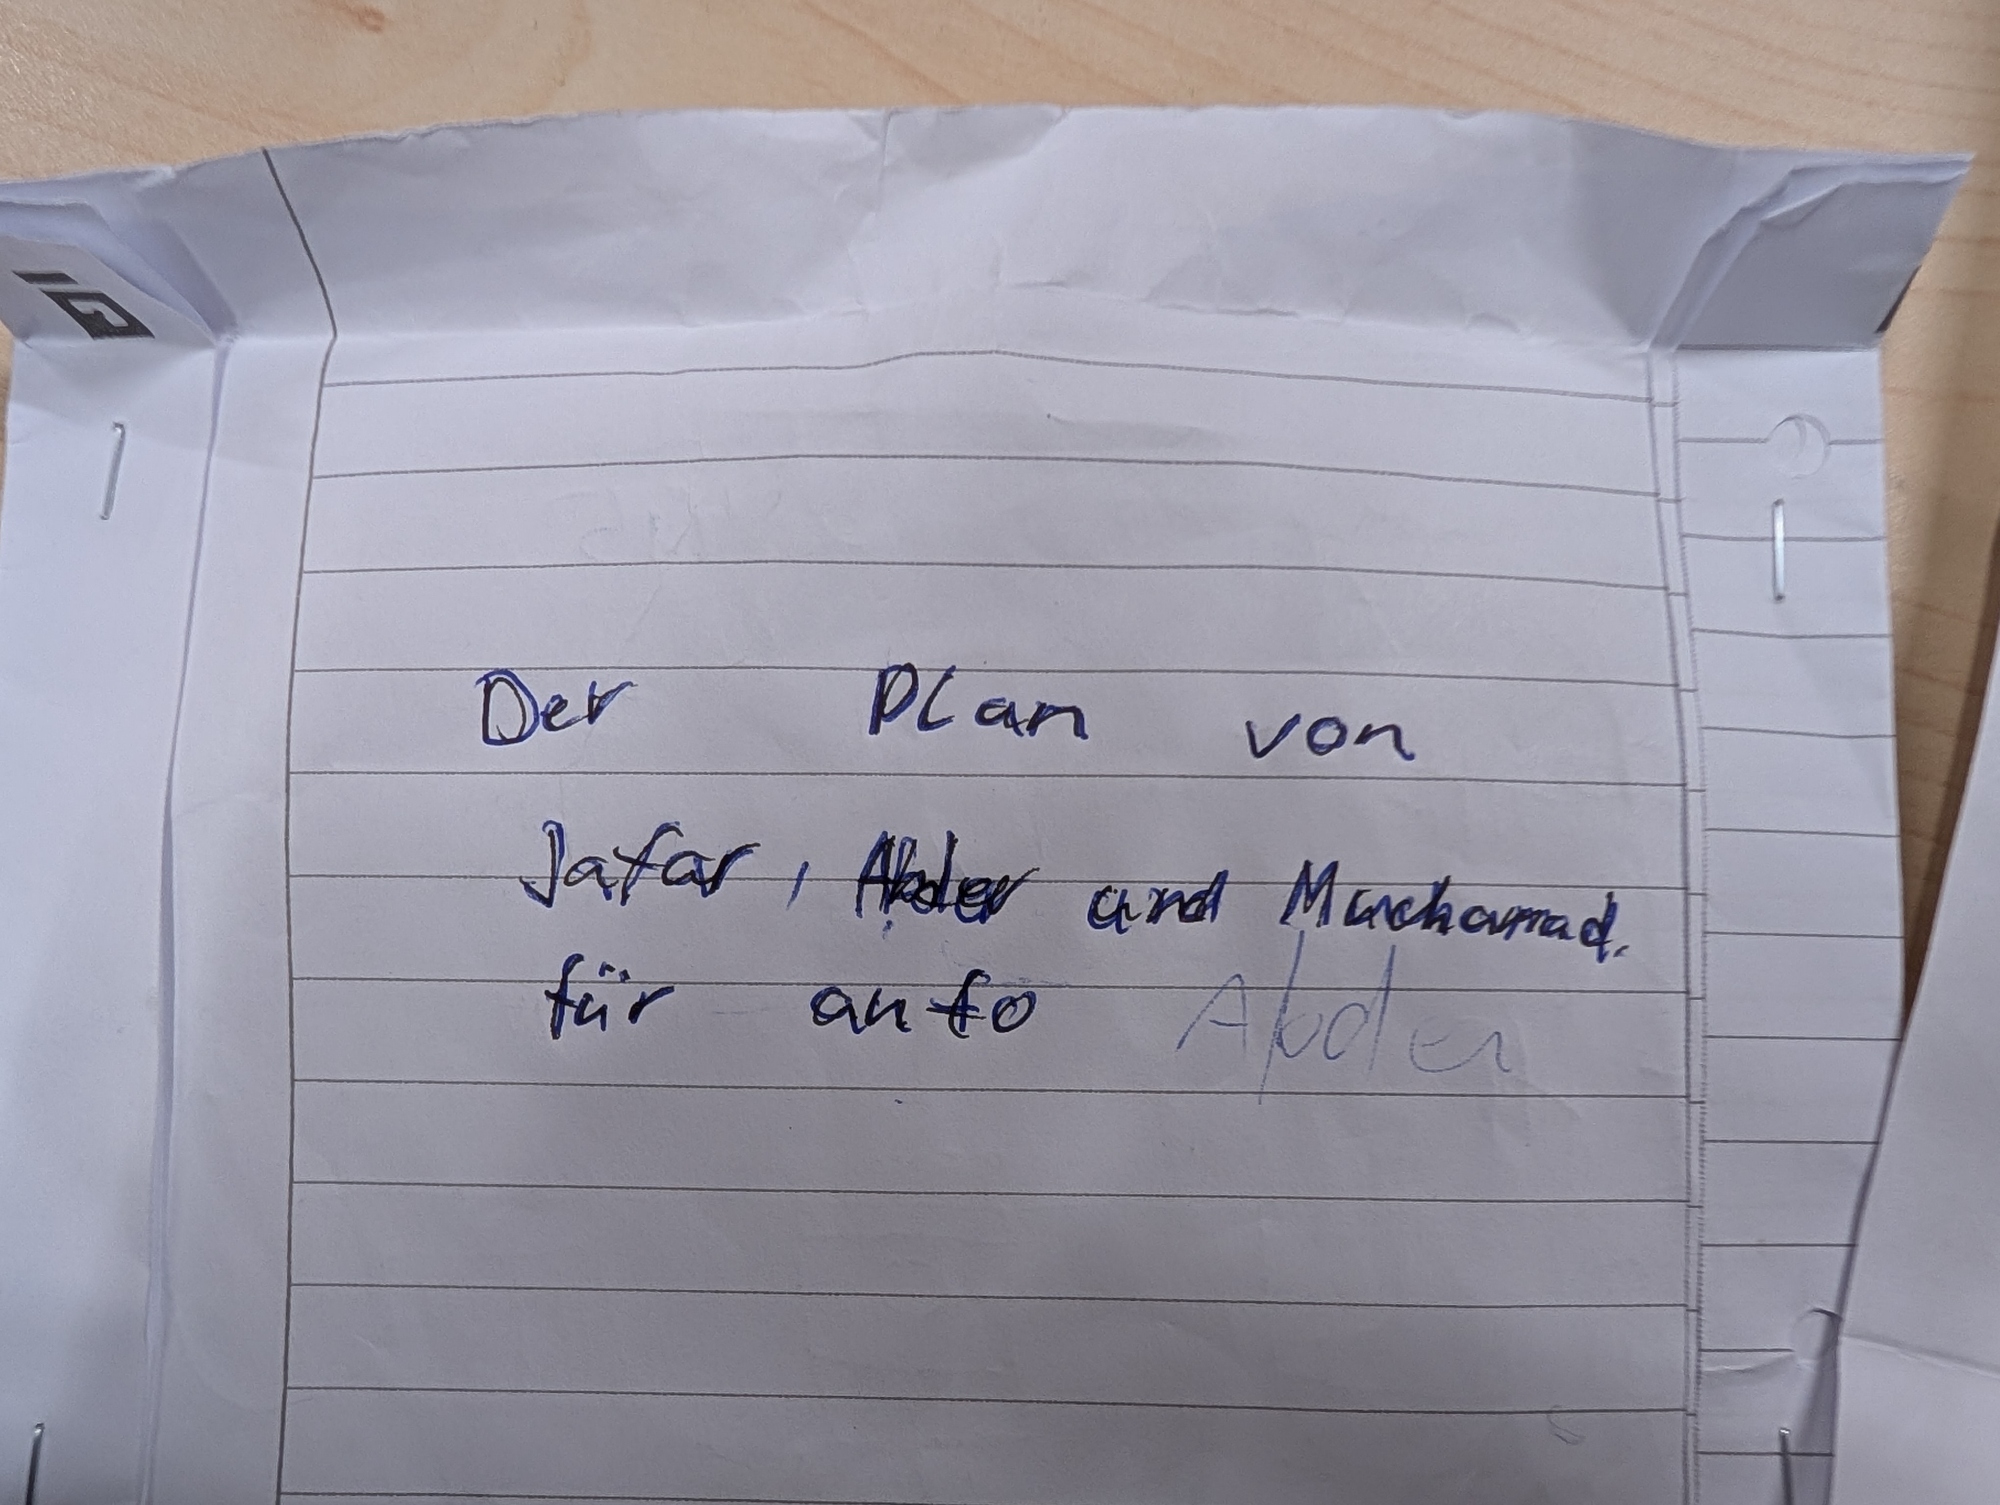 Der Plan von
Jafar, Abder und Muchamad.
für auto Abder